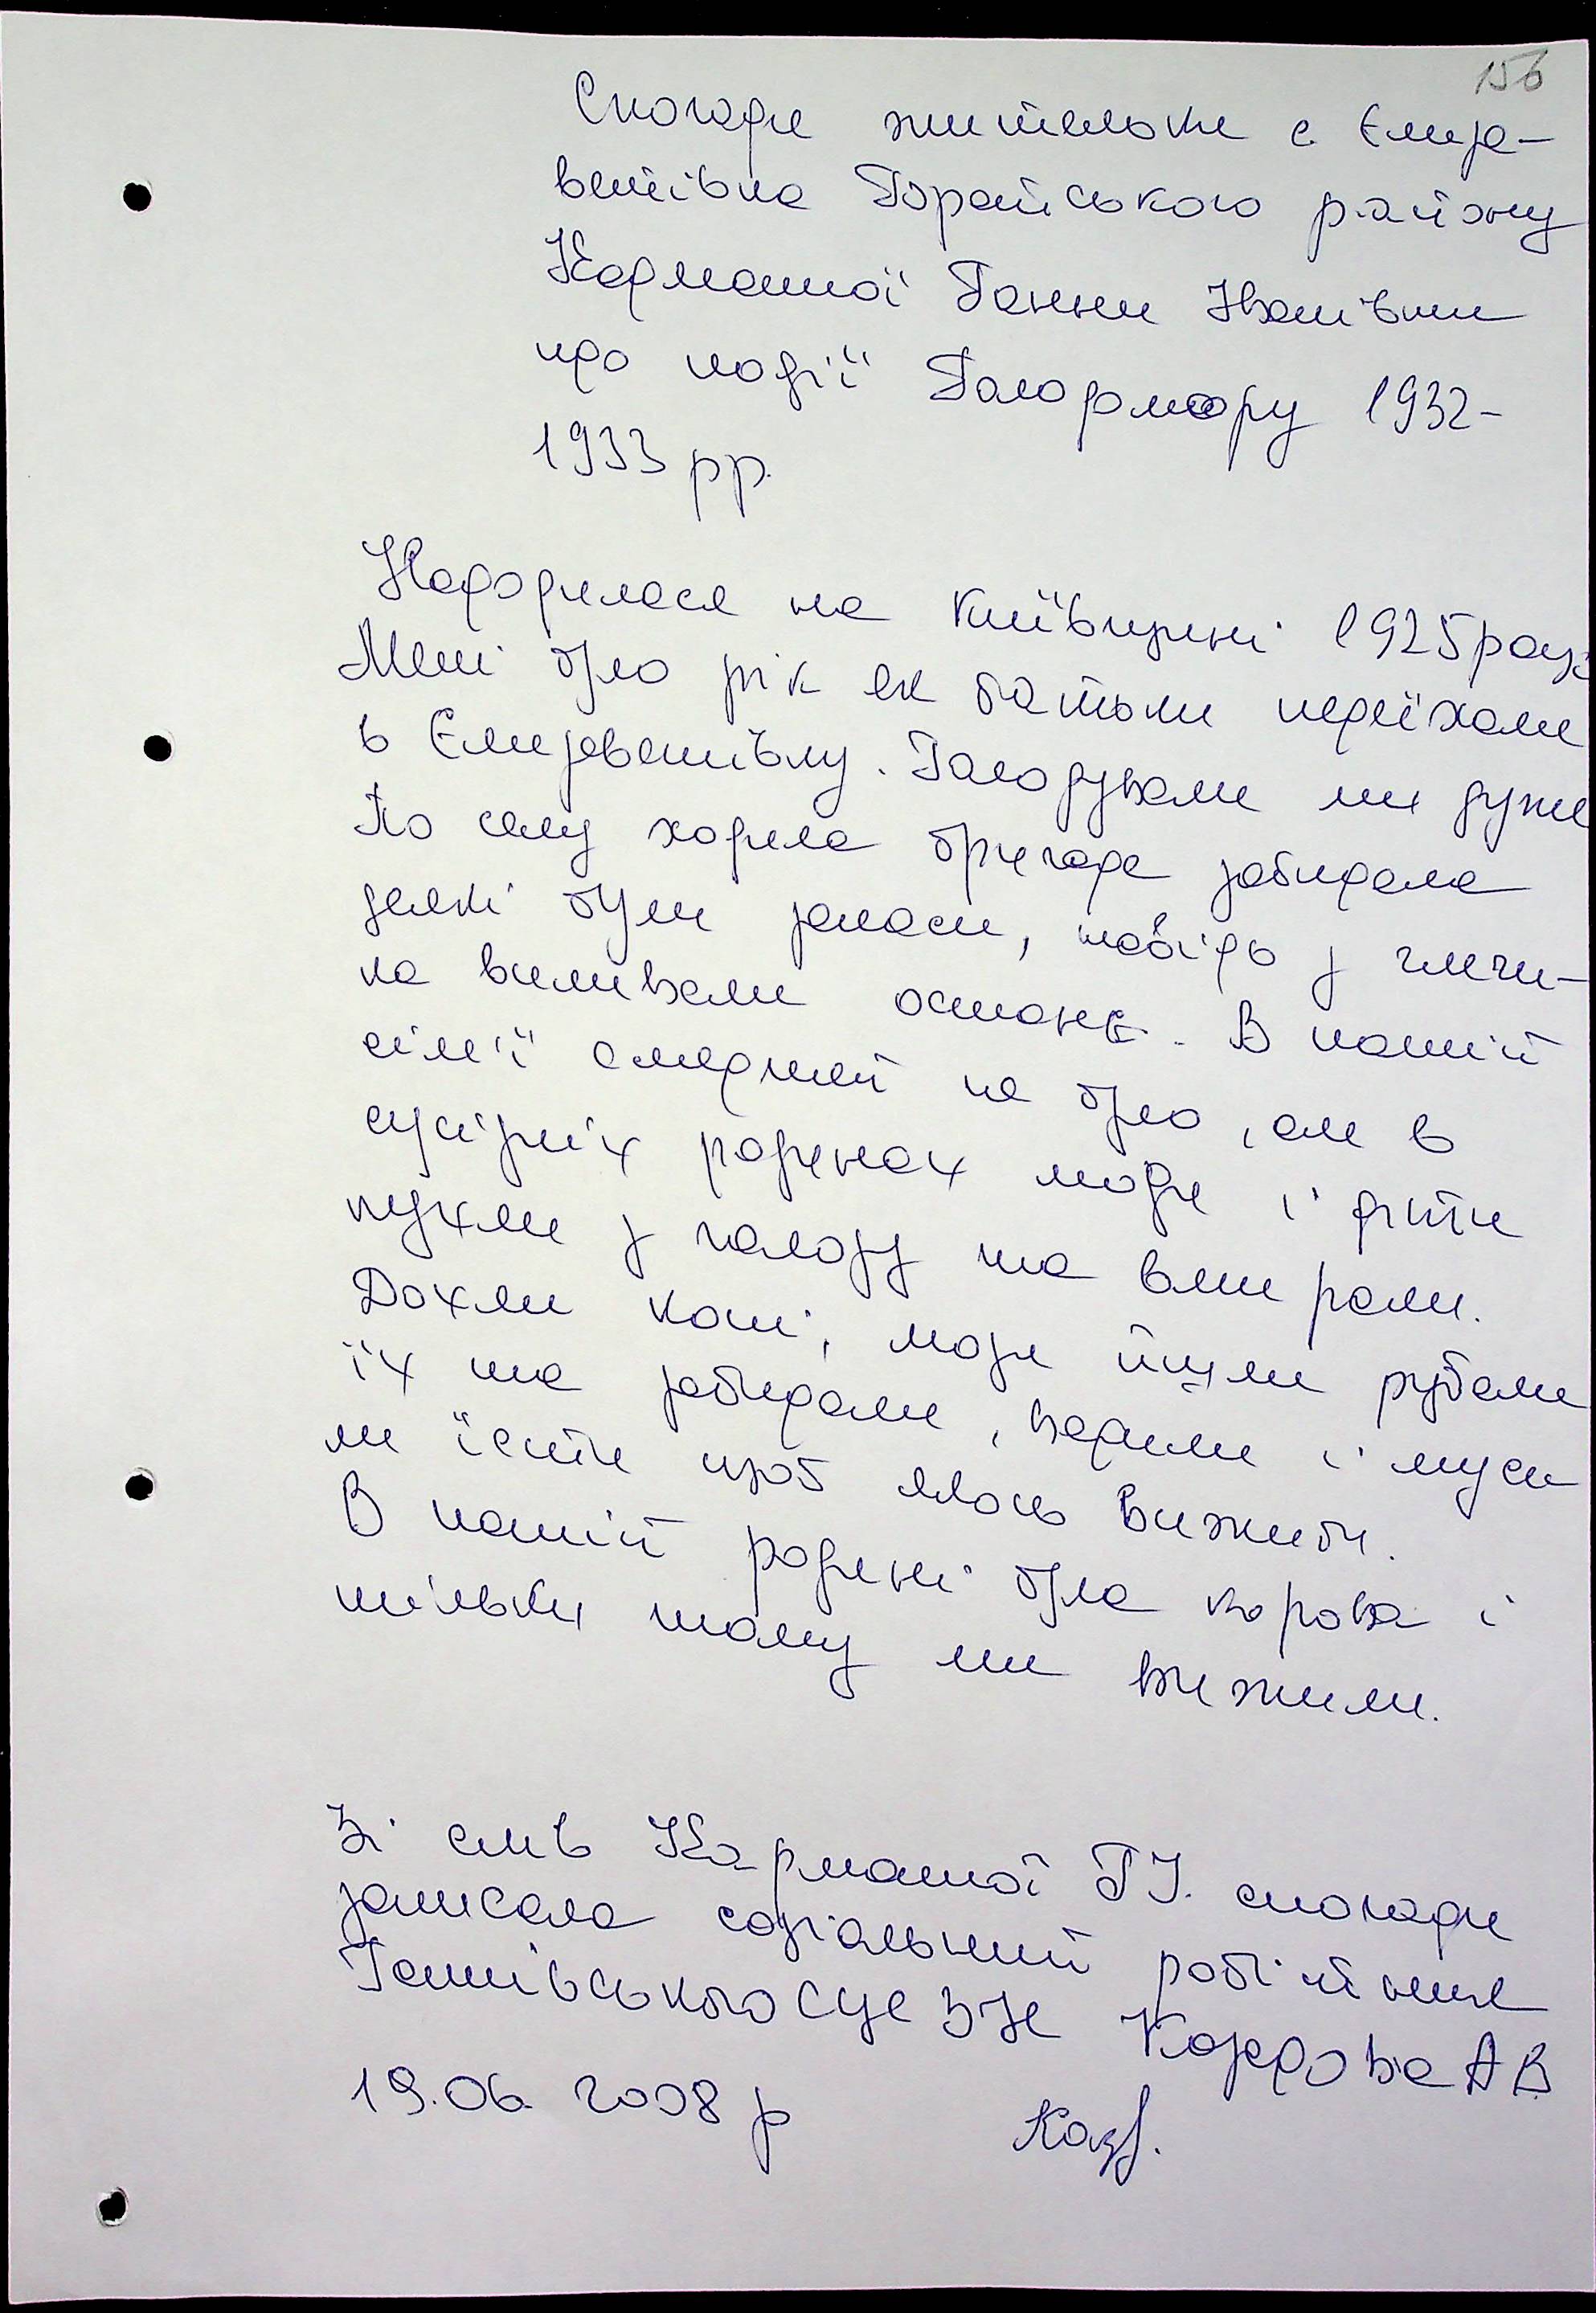 156
Спогади жительки с. Єлиза-
ветівка Тфайського району
Карманної Ганни Іванівни
про події Голодомору 1932-
1933 рр.
Народилася на Київщині 1925 року
Мені було рік як батьки переїхали
в Єлизаветівку. Голодували ми дуже
По селу ходила бригада забирала
деякі були запаси, навіть з глечи-
ка виливали останнє. В нашій
сім'ї смертей не було, але в
сусідніх родинах люди і діти
пухли з голоду та вмирали.
Дохли коні, люди йшли рубали
їх та забирали, варили і муси
ли їсти щоб якось вижити.
В нашій родині була корова і
тільки тому ми вижили.
Зі слів Карманної Г.І. спогади
записала соціальний робітник
СУС ЗЖ А В
19.06. 2008 р